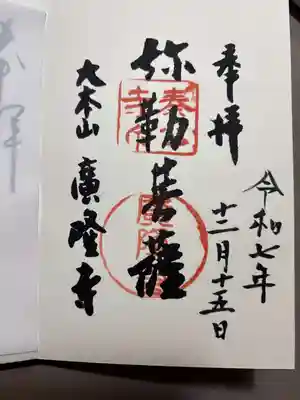 奉拝
令和七年
十二月十五日
弥勒菩薩
大本山 廣隆寺